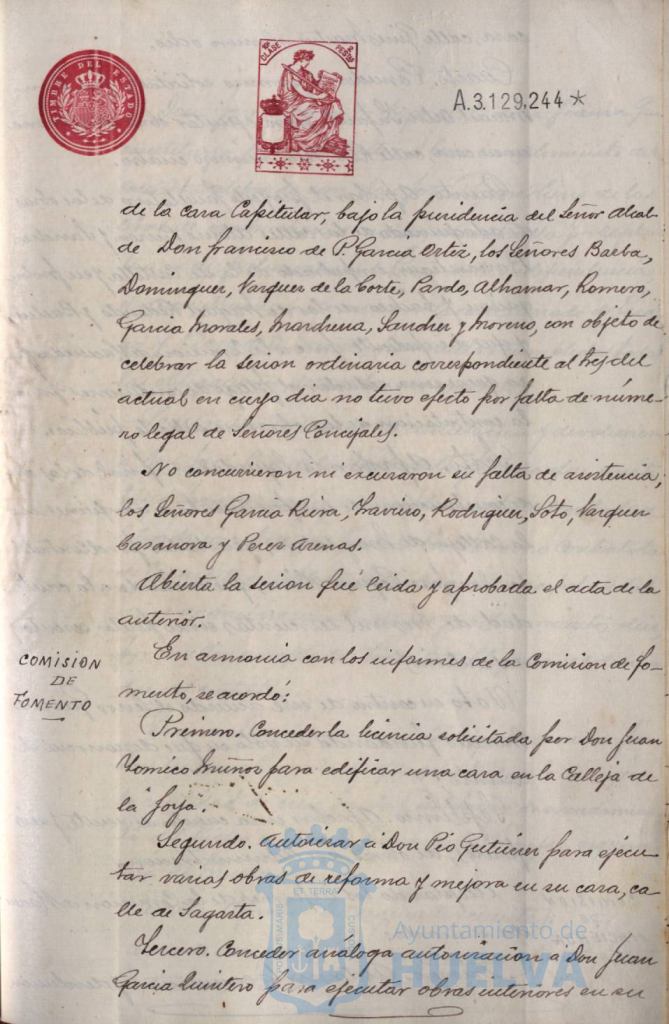 TIMBRE DEL ESTADO
10ª CLASE
2 PESTAS
A.3.129.244*
de la casa Capitular, bajo la presidencia del Señor Alcal-
de Don Francisco de P. Garcia Ortiz, los Señores Barba,
Dominguez, Vazquez de la Corte, Pardo, Alhamar, Romero,
Garcia Morales, Marchena, Sanchez y Moreno, con objeto de
celebrar la sesion ordinaria correspondiente al tres del
actual en cuyo dia no tuvo efecto por falta de núme-
ro legal de Señores Concejales.
No concurrieron ni excusaron su falta de asistencia,
los Señores Garcia Riera, Traviño, Rodriguez, Soto, Vazquez
Casanova y Perez Arenas.
Abierta la sesion fué leida y aprobada el acta de la
anterior.
COMISION
DE
FOMENTO
En armonia con los informes de la Comision de Fo-
mento, se acordó:
Primero. Conceder la licencia solicitada por Don Juan
Muñoz para edificar una casa en la Calleja de
la Joya.
Segundo. Autorizar á Don Pio Gutierrez para ejecu-
tar varias obras de reforma y mejora en su casa, ca-
lle de Sagasta.
Tercero. Conceder análoga autorizacion á Don Juan
Garcia Quintero para ejecutar obras interiores en su
Ayuntamiento de
HUELVA